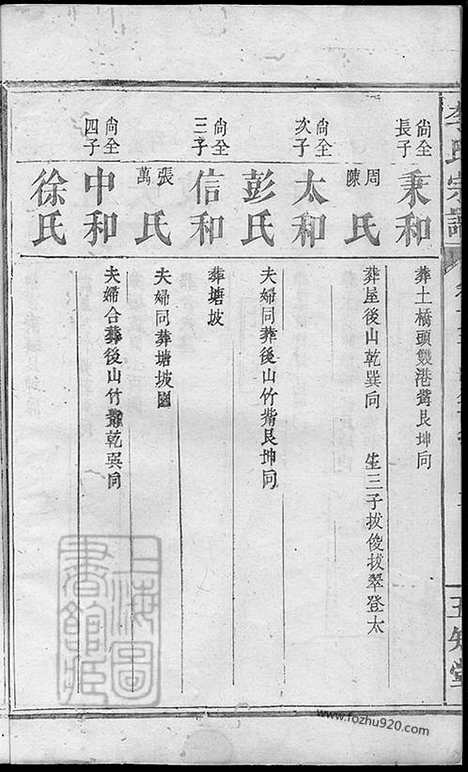 李氏宗譜
五知堂
尚全長子
秉和
葬土橋頭雙港觜艮坤向
周陳氏
葬屋後山乾巽向 生三子拔俊拔翠登太
尚全次子
太和
彭氏
夫婦同葬後山竹觜艮坤向
尚全三子
信和
葬塘坡
張萬氏
夫婦同葬塘坡園
尚全四子
中和
夫婦合葬後山竹乾巽向
徐氏
上海圖書館藏
www.fozhu920.com